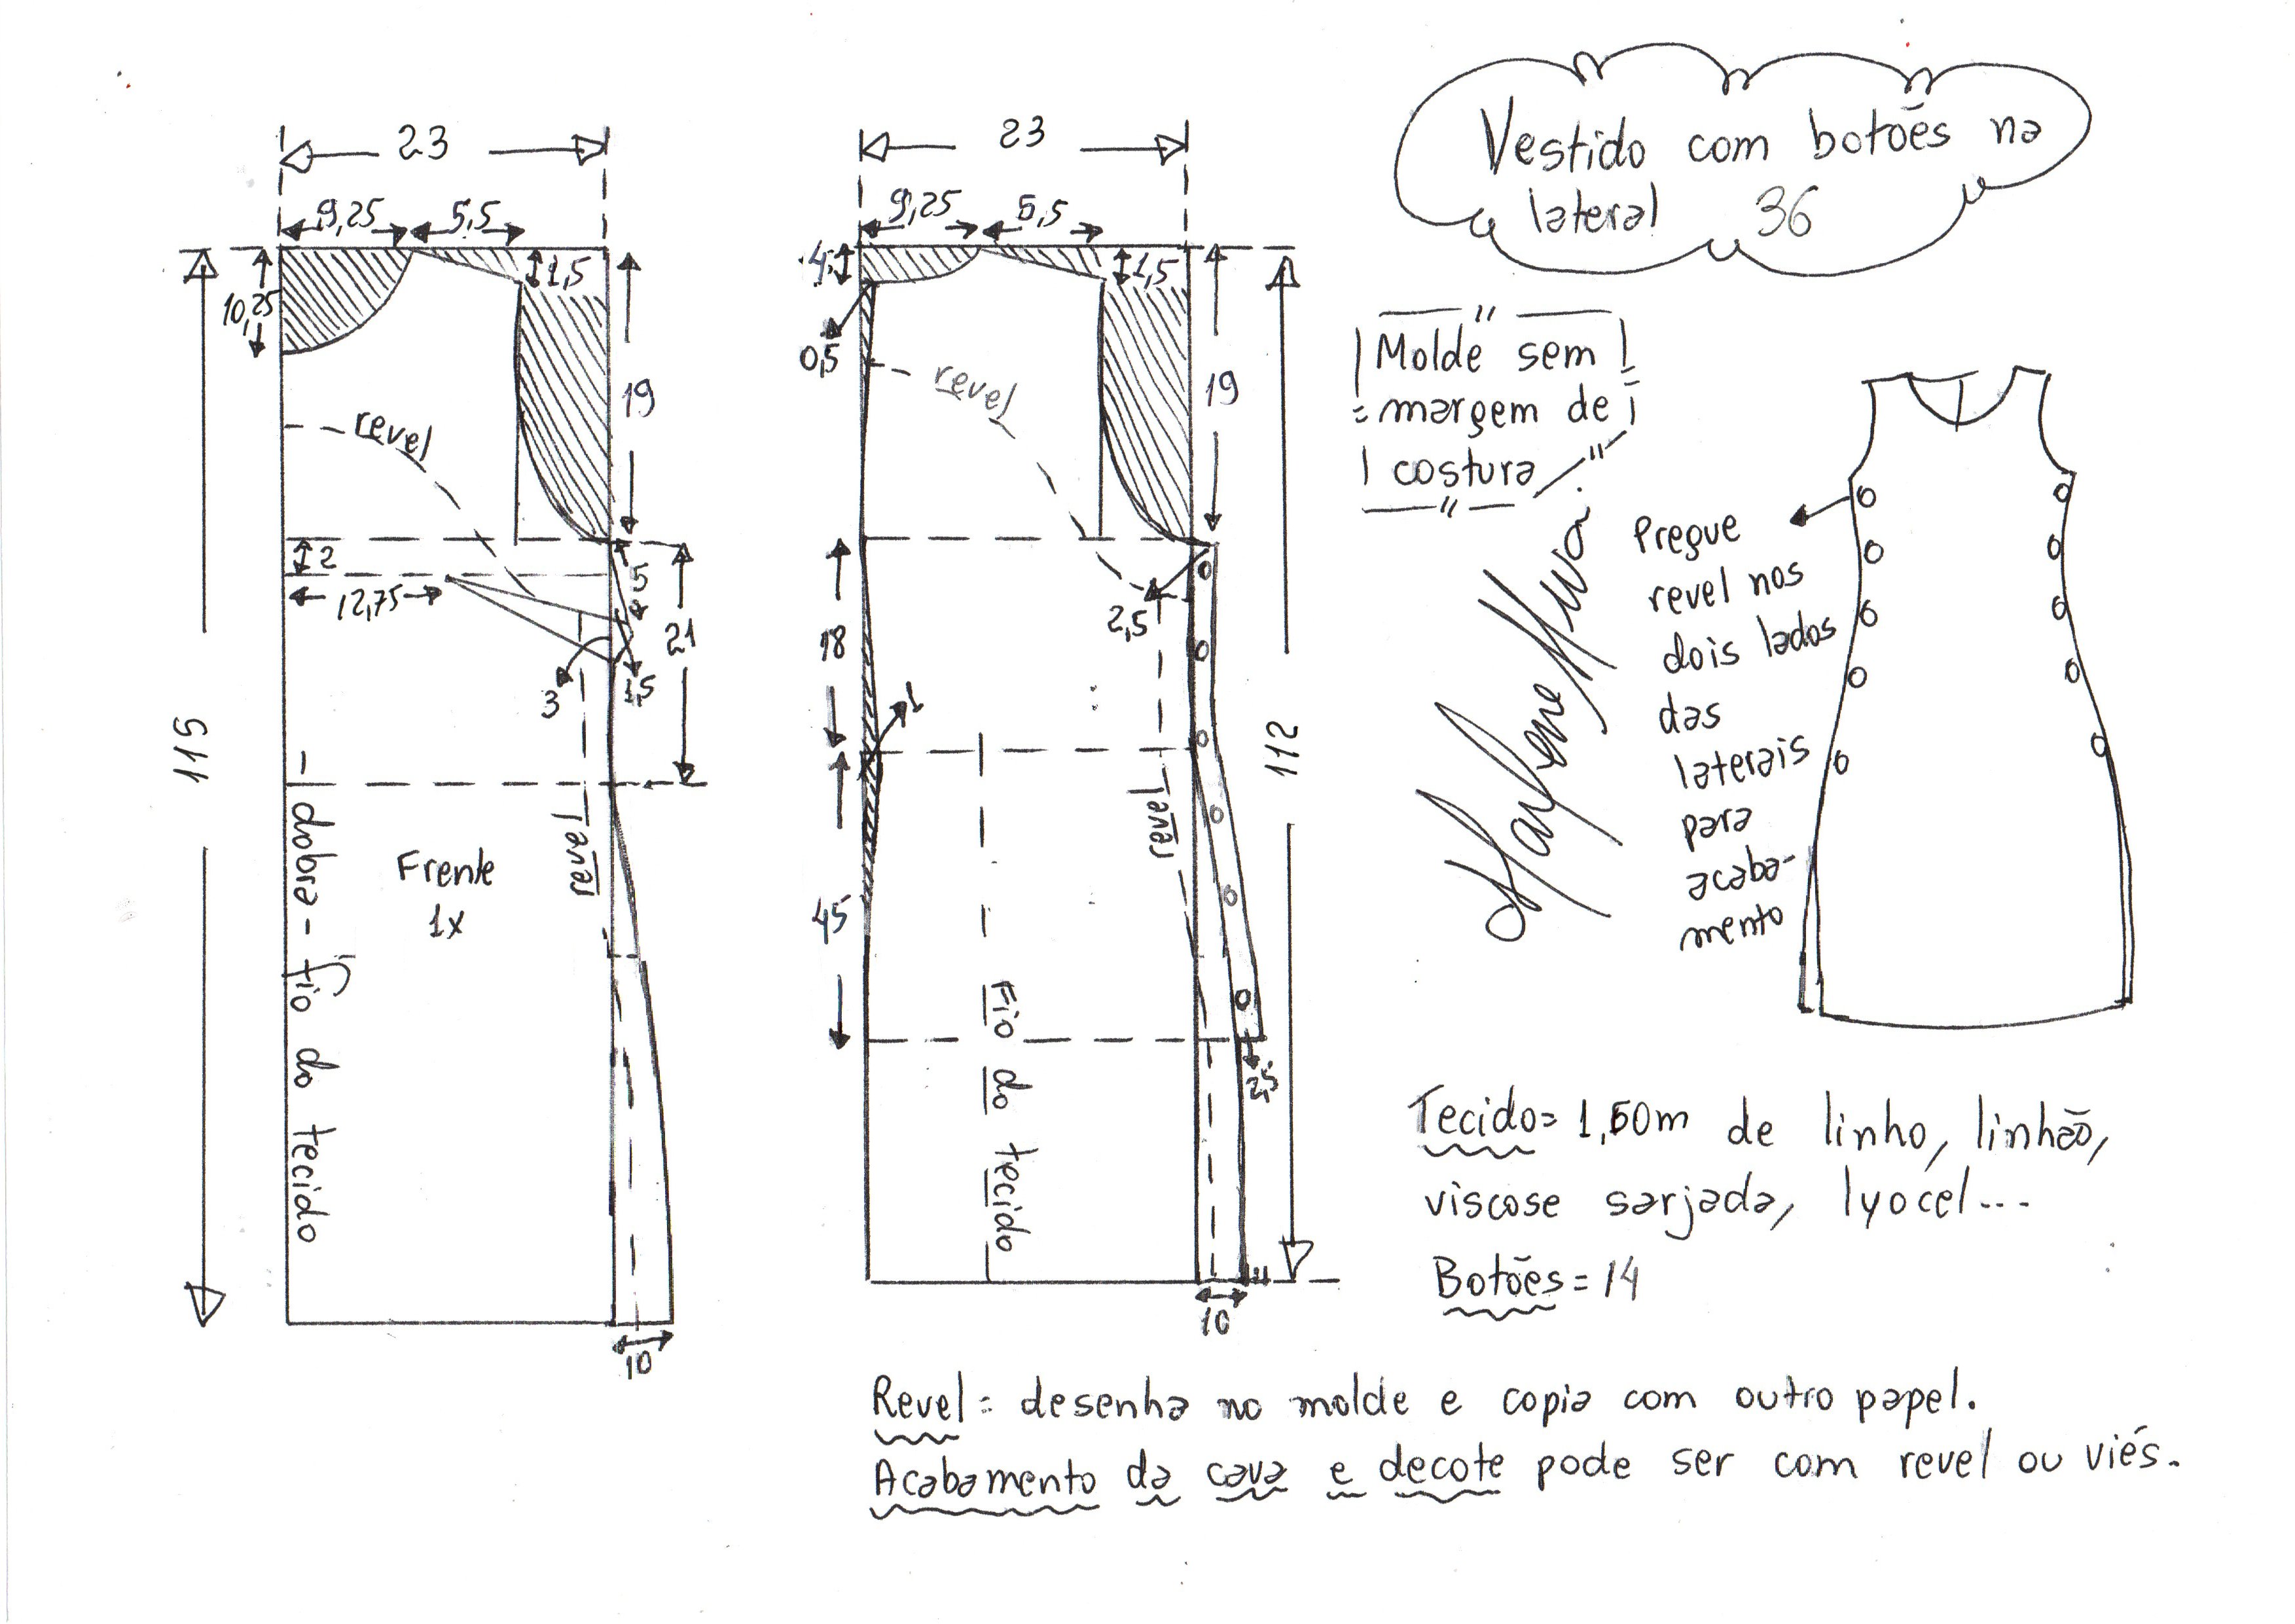 Vestido com botões na
lateral 36
23
9,25 5,5
10,25
1,5
19
revel
2
12,75
5
3
1,5
21
115
dobra - fio do tecido
Frente
1x
revel
10
23
9,25 5,5
4
1,5
0,5
revel
19
18
2,5
1
112
45
revel
Fio do tecido
2,5
10
Molde sem
margem de
costura
Marlene Mukai
Pregue
revel nos
dois lados
das
laterais
para
acaba-
mento
Tecido= 1,50m de linho, linhão,
viscose sarjada, lyocel...
Botões = 14
Revel = desenha no molde e copia com outro papel.
Acabamento da cava e decote pode ser com revel ou viés.